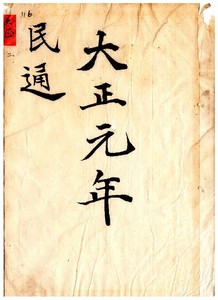 116
大正元年
民通